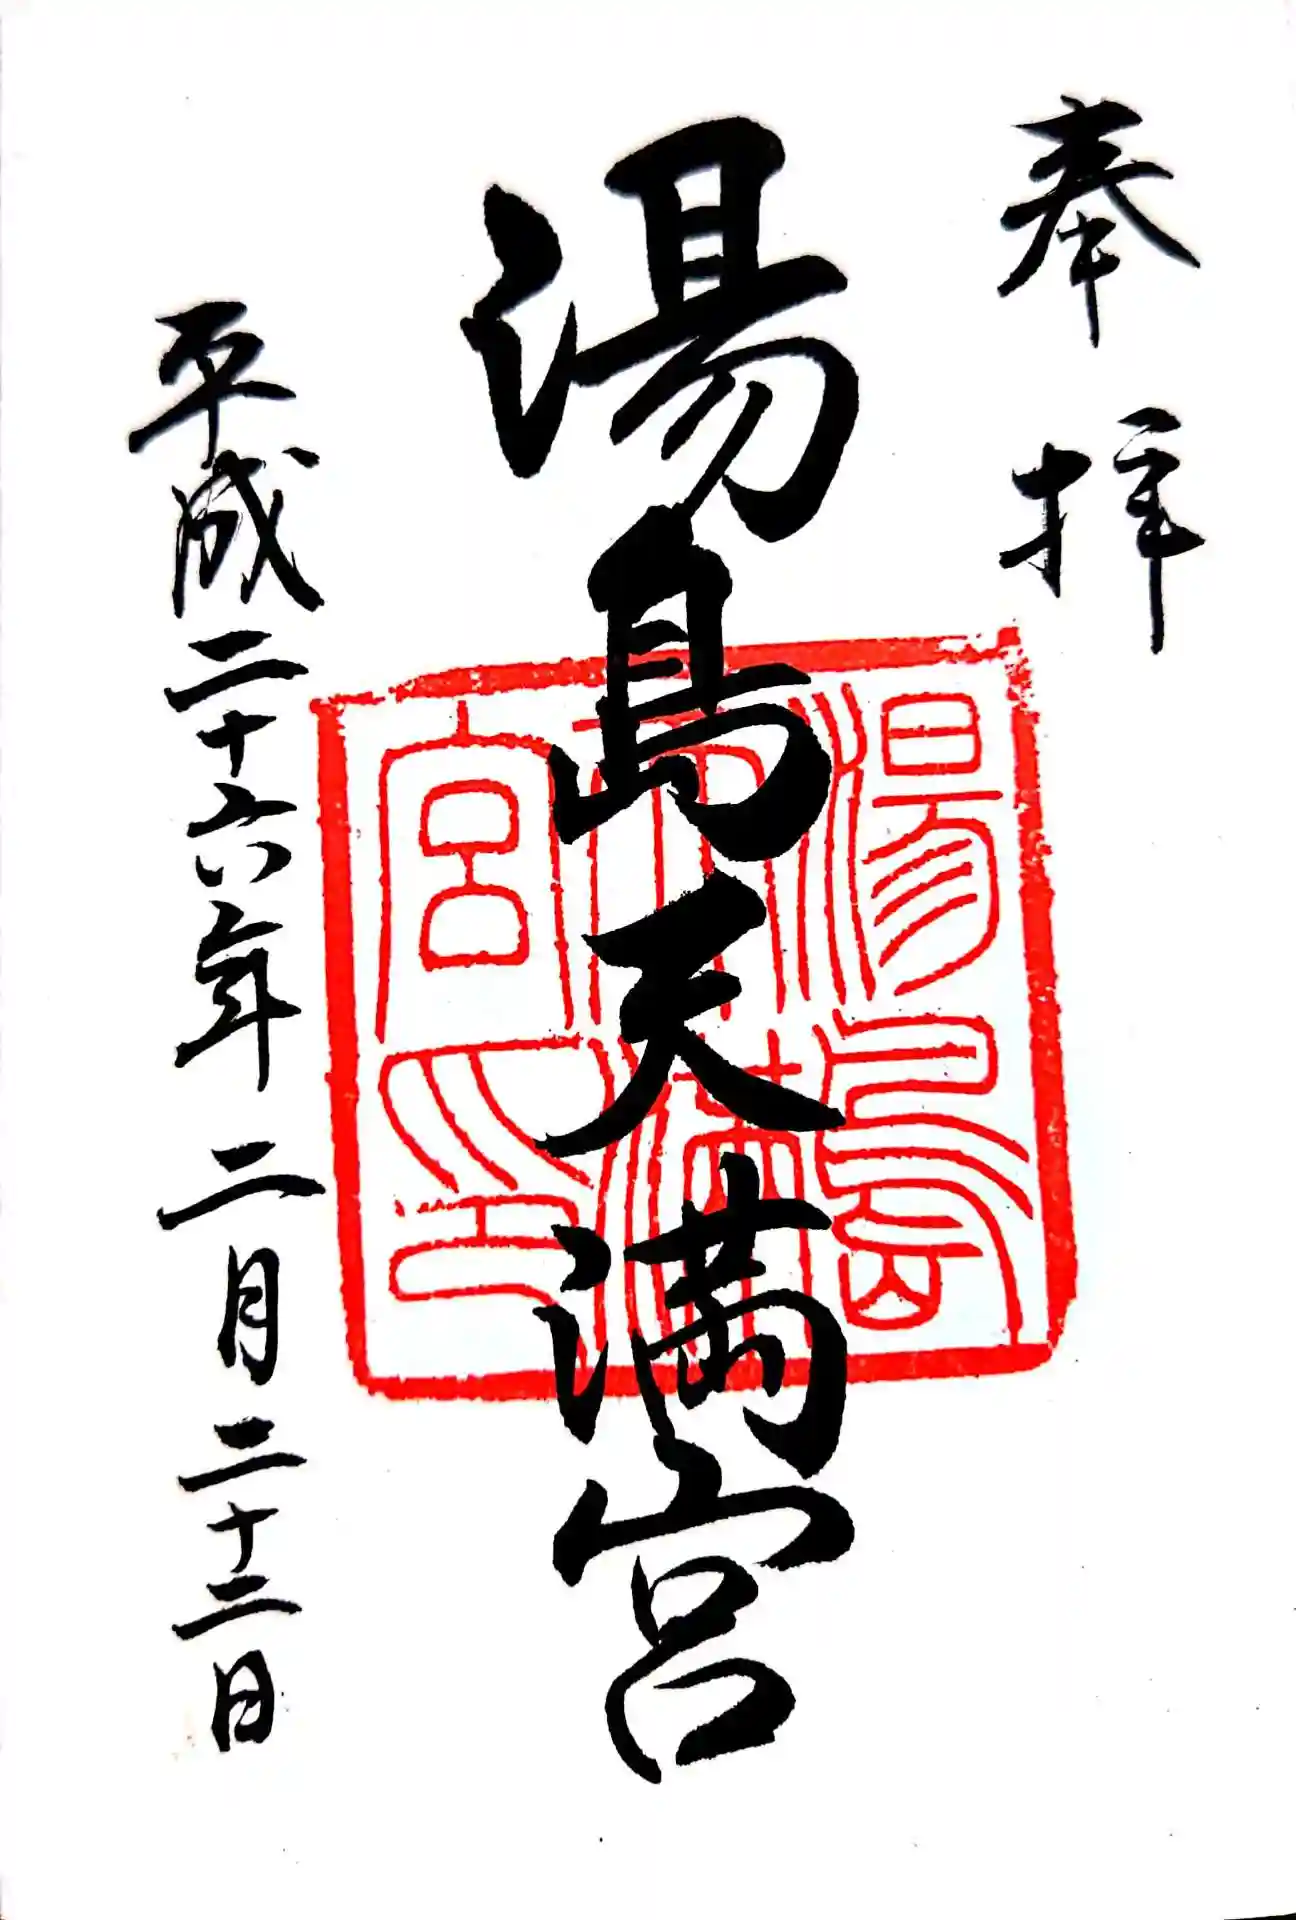 奉拝
湯島天満宮
湯島天満宮印
平成二十六年二月二十二日